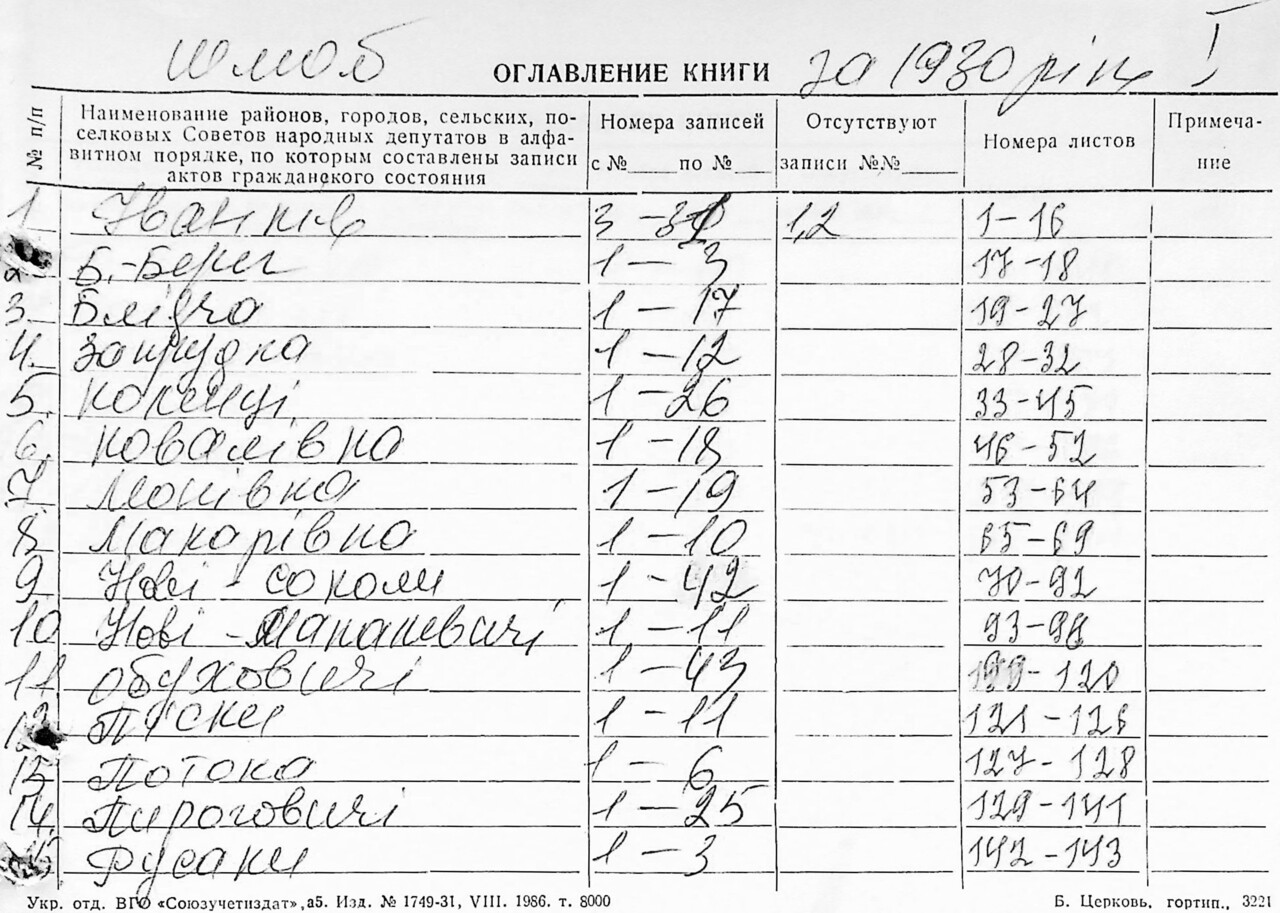 шлюб ОГЛАВЛЕНИЕ КНИГИ за 1930 рік I
№ п/п
Наименование районов, городов, сельских, по-
селковых Советов народных депутатов в алфа-
витном порядке, по которым составлены записи
актов гражданского состояния
Номера записей
с №____ по №____
Отсутствуют
записи №№______
Номера листов
Примеча-
ние
1 Іванків 3-31 1,2 1-16
2 Б.-Берег 1-3 17-18
3. Блідча 1-17 19-27
4. Запрудка 1-12 28-32
5. Коленці 1-26 33-45
6. Ковалівка 1-18 46-52
7. 1-19 53-64
8. Макарівка 1-10 65-69
9 Нові-соколи 1-42 70-92
10 Нові-Макалевичі 1-11 93-98
11. Обуховичі 1-43 199-120
12 Піски 1-11 121-126
13 Потока 1-6 127-128
14. Пироговичі 1-25 129-141
15 Русаки 1-3 142-143
Укр. отд. ВГО «Союзучетиздат», а5. Изд. № 1749-31, VIII. 1986. т. 8000
Б. Церковь, гортип., 3221